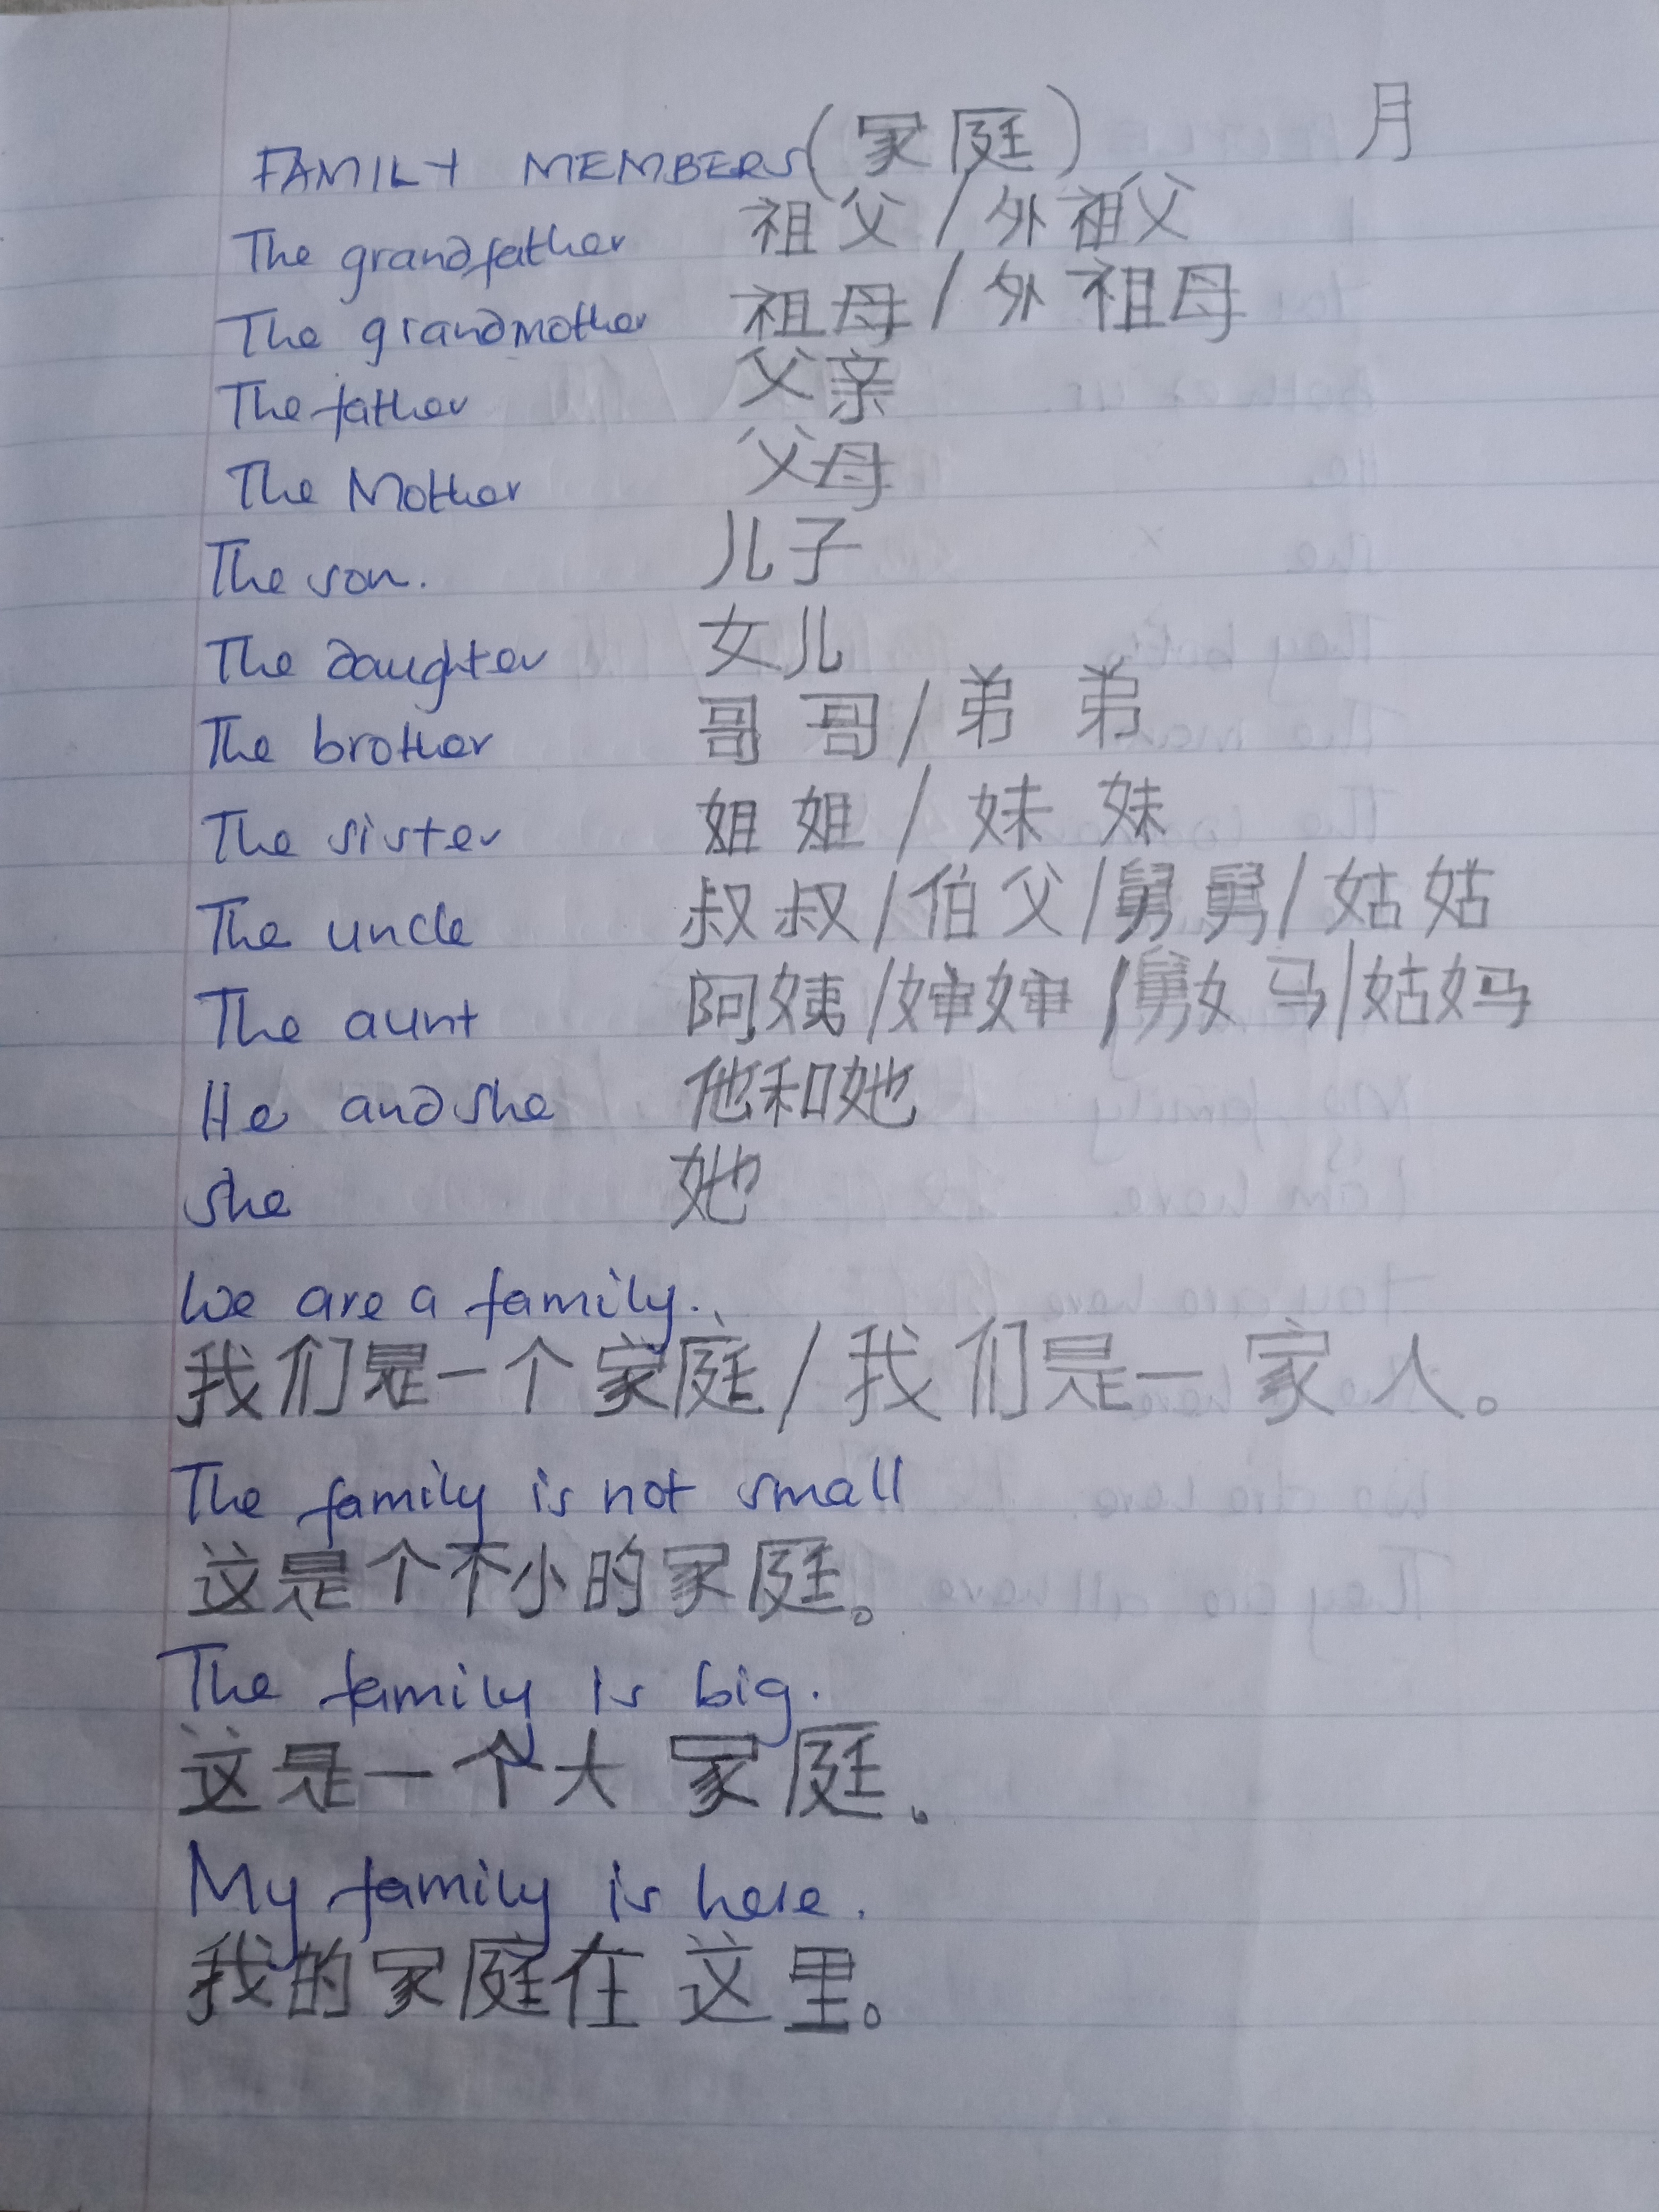 FAMILY MEMBERS(家庭) 月
The grandfather 祖父/外祖父
The grandmother 祖母/外祖母
The father 父亲
The Mother 父母
The son. 儿子
The daughter 女儿
The brother 哥哥/弟弟
The sister 姐姐/妹妹
The uncle 叔叔/伯父/舅舅/姑姑
The aunt 阿姨/婶婶/舅妈/姑妈
He and she 他和她
she 她
We are a family.
我们是一个家庭/我们是一家人。
The family is not small
这是个不小的家庭。
The family is big.
这是一个大家庭。
My family is here.
我的家庭在这里。